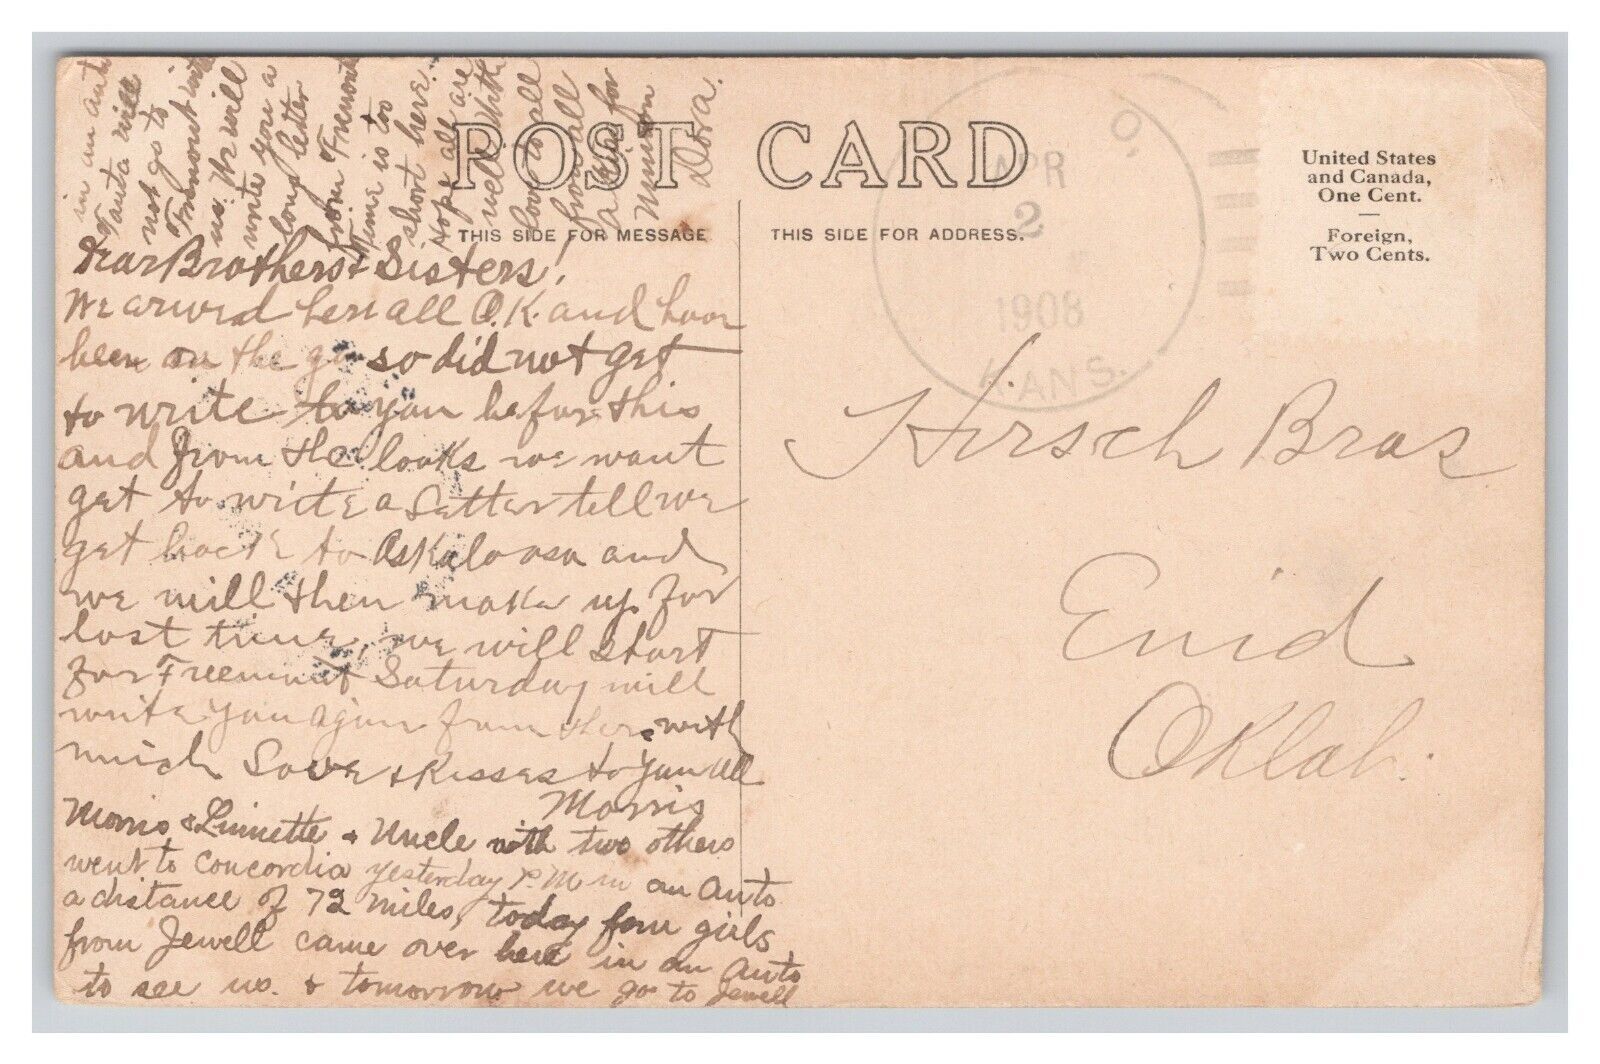 POST CARD
THIS SIDE FOR MESSAGE
THIS SIDE FOR ADDRESS.
United States
and Canada,
One Cent.
Foreign,
Two Cents.
O.
APR
2
1908
KANS.
Hirsch Bros
Enid
Oklah.
Dear Brothers & Sisters!
We arived here all O.K. and have
been on the go so did not get
to write to you before this
and from the looks we want
get to write a letter tell we
get back to Oskaloosa and
we will then make up for
lost time, we will start
for Freemont Saturday will
write you again from there with
much Love & Kisses to you all
Morris
Morris & Linnette & Uncle with two others
went to Concordia yesterday P.M in an Auto
a distance of 72 miles, today four girls
from Jewell came over here in an Auto
to see us. & tomorrow we go to Jewell
in an auto
Tanta will
not go to
Fremount with
us. We will
write you a
long letter
from Fremont
Time is too
short here.
Hope all are
well. With
love to all
from all
a kiss for
Minion
Dora.